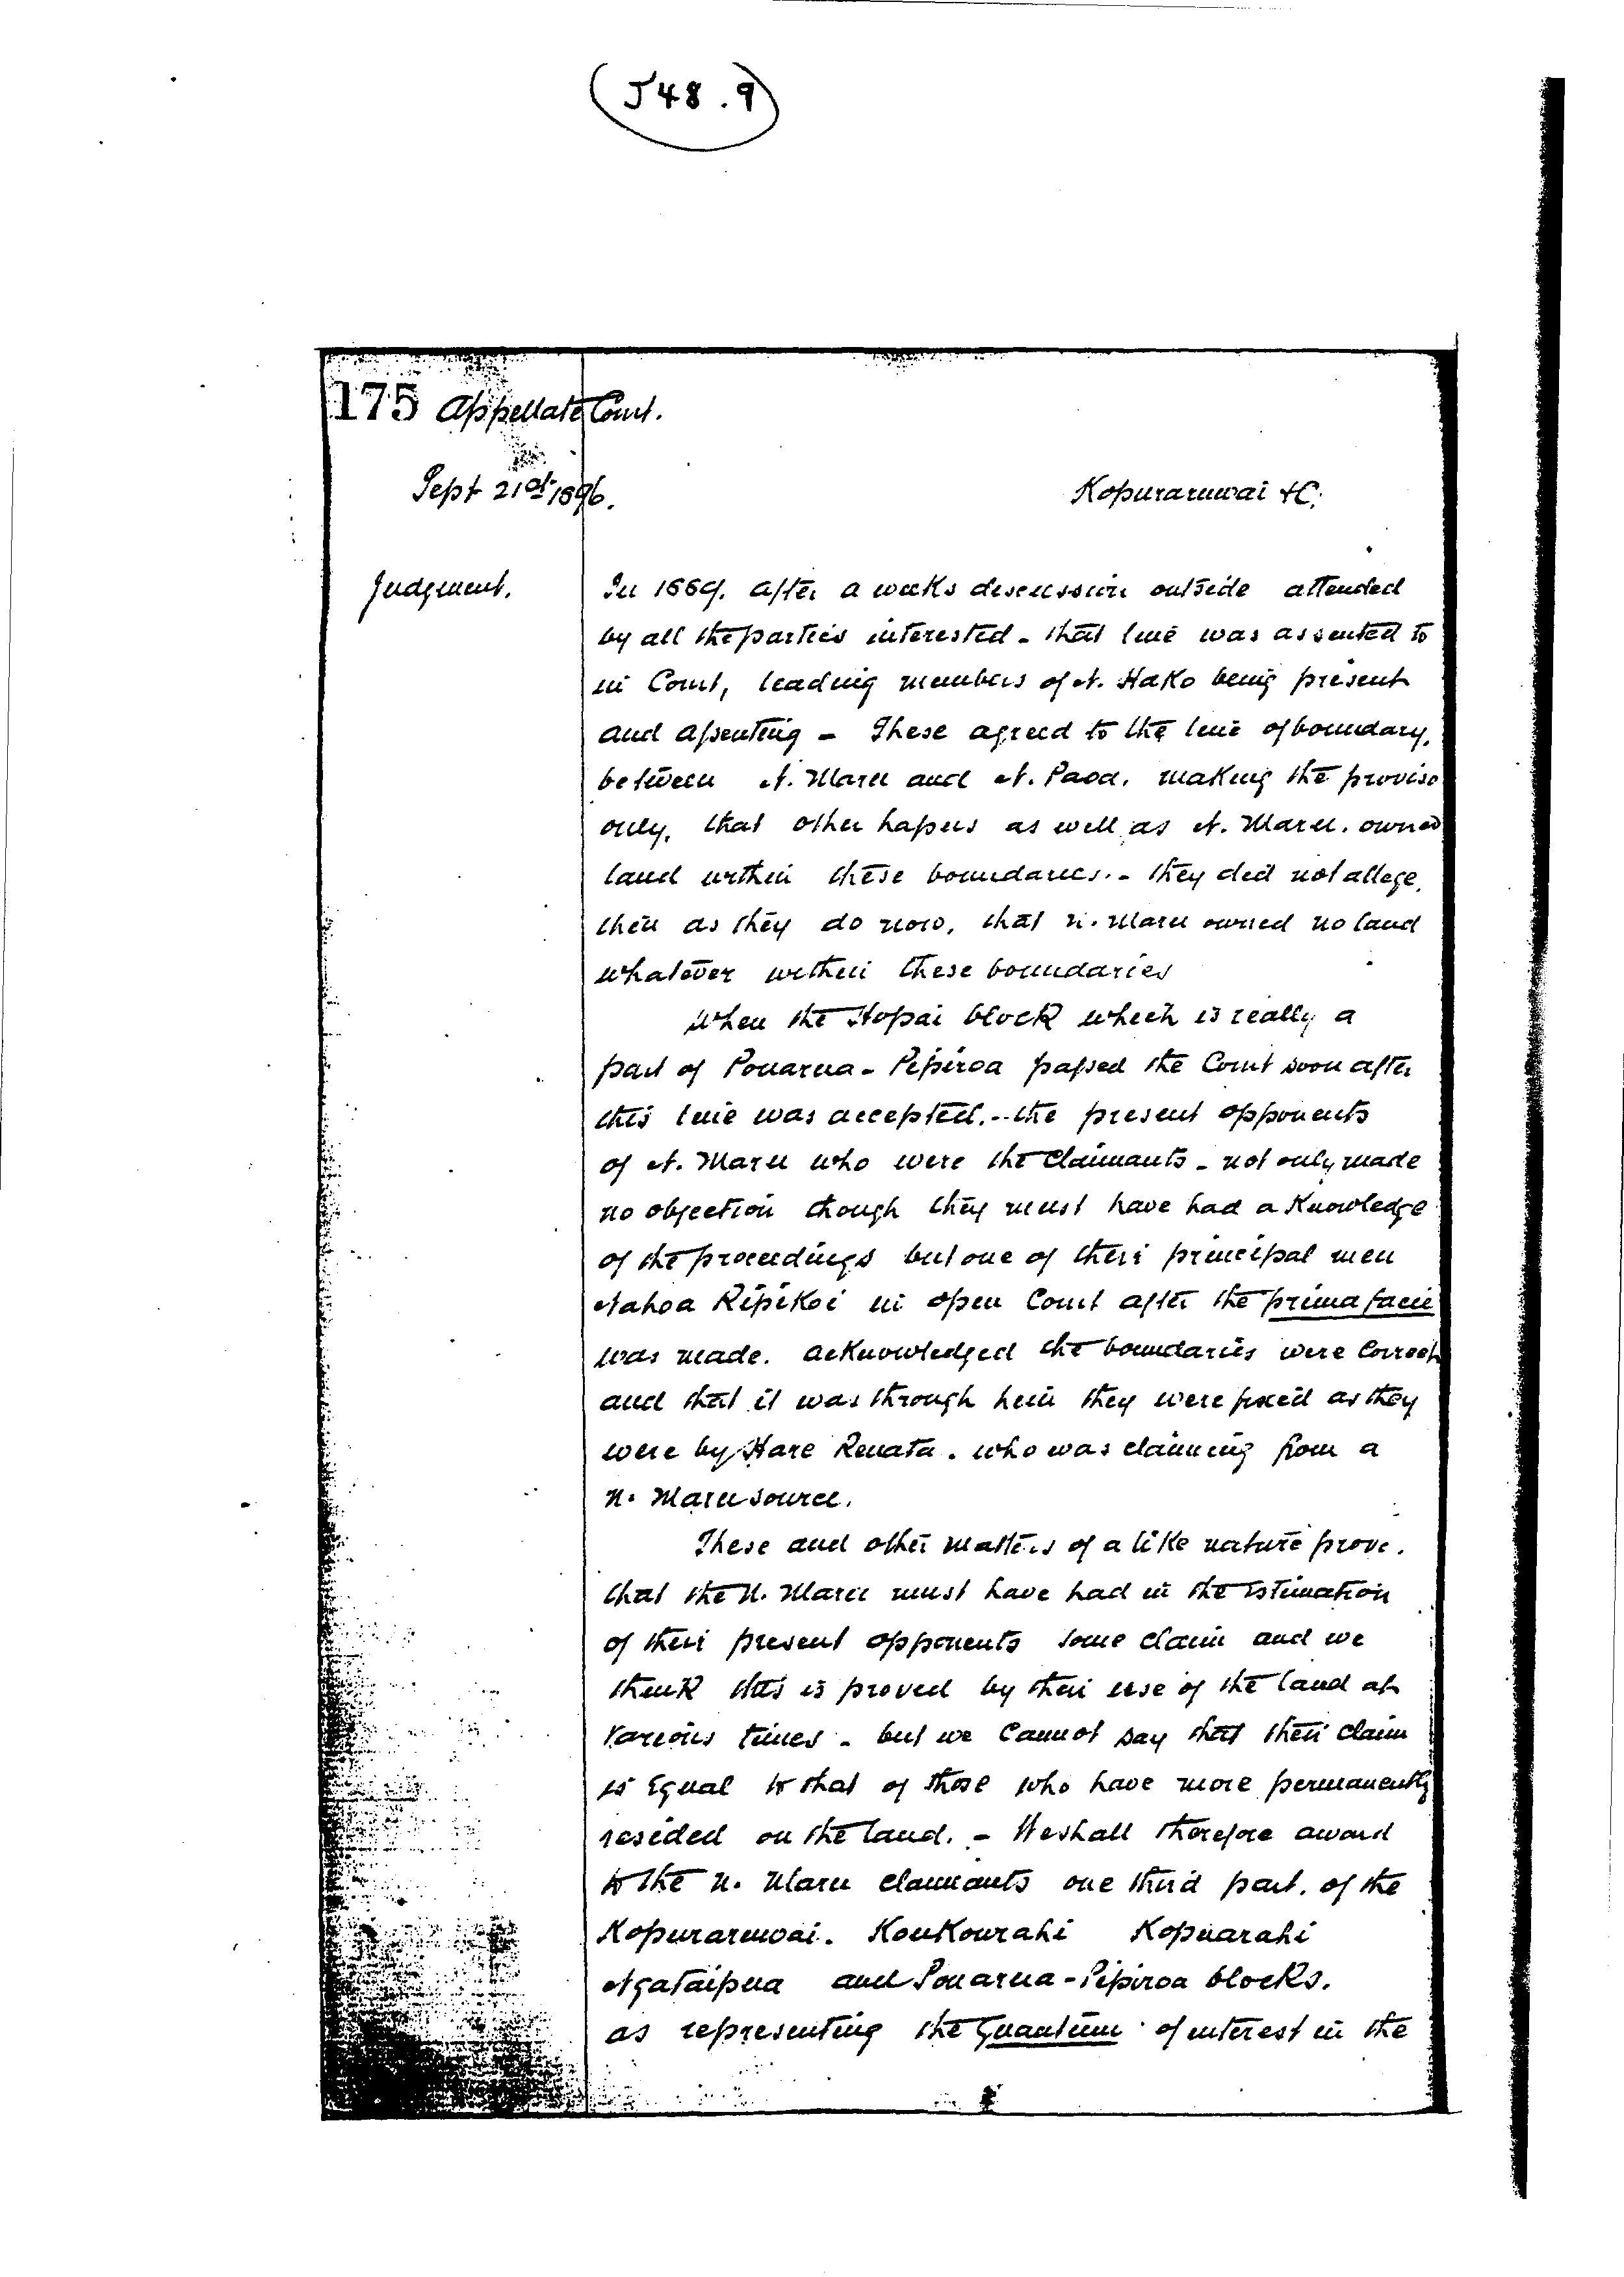 (J48.9)
175 Appellate Court.
Sept 21st 1896.
Kopuraruwai &C.
Judgment.
In 1889. after a weeks discussion outside attended
by all the parties interested - that line was assented to
in Court, leading members of N. Hako being present
and assenting - These agreed to the line of boundary,
between N. Maru and N. Paoa. making the proviso
only, that other hapus as well as N. Maru. owned
land within these boundaries. - they did not allege,
then as they do now, that N. Maru owned no land
whatever within these boundaries
When the Hopai block which is really a
part of Pouarua - Pipiroa passed the Court soon after
this line was accepted. - the present opponents
of N. Maru who were the Claimants - not only made
no objection though they must have had a Knowledge
of the proceedings but one of their principal men
Nahoa Ripikoi in open Court after the prima facie
was made. acknowledged the boundaries were Correct
and that it was through him they were fixed as they
were by Hare Renata. who was claiming from a
N. Maru source.
These and other matters of a like nature prove.
that the N. Maru must have had in the Estimation
of their present opponents some claim and we
think this is proved by their use of the land at
various times - but we Cannot say that their claim
is Equal to that of those who have more permanently
resided on the land. - We shall therefore award
to the N. Maru claimants one third part. of the
Kopuraruwai. Koukourahi Kopuarahi
Ngataipua and Pouarua - Pipiroa blocks.
as representing the Quantum of interest in the